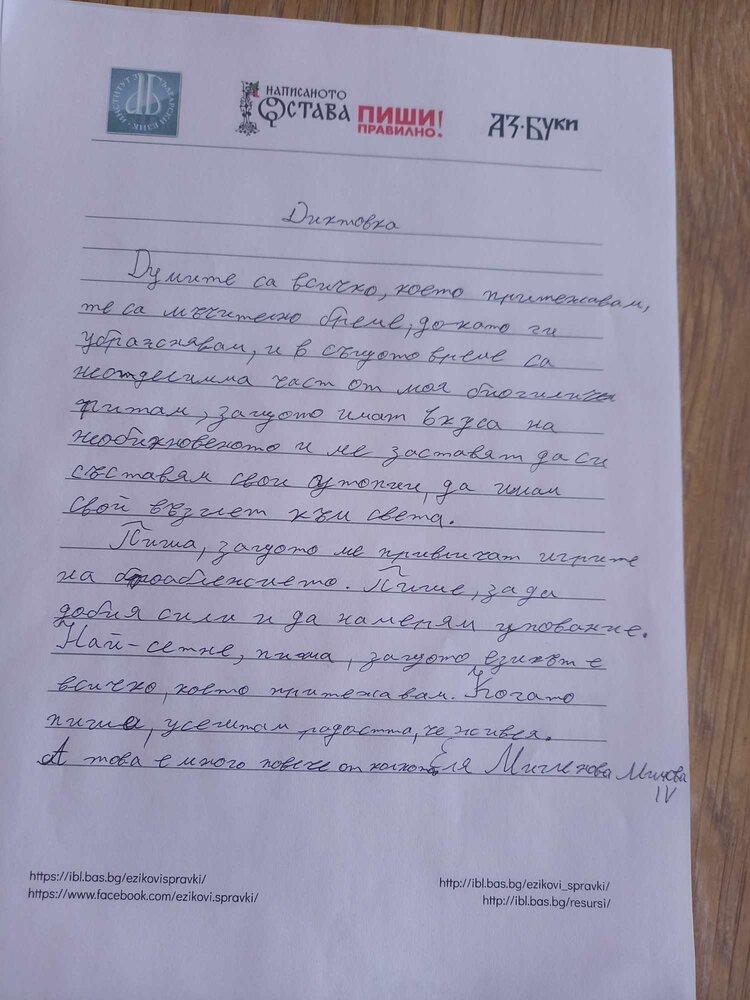 ИНСТИТУТ ЗА БЪЛГАРСКИ ЕЗИК
НАПИСАНОТО
ОСТАВА ПИШИ!
ПРАВИЛНО!
АЗ·БУКИ
Диктовка
Думите са всичко, което притежавам,
те са мъчително бреме, докато ги
убразнявам, и в същото време са
неотдесимма част от моя
ритам, защото имат вкуса на
необикновеното и ме заставят да си
съставям свои утопии, да имам
свой възглет към света.
Пиша, защото ме привличат игрите
на . Пише, за да
добия сили и да намерям упование.
Най-сетне, пиша, защото езикът е
всичко, което притежавам. Когато
пиша, усештам радостта, че живея.
А това е много повече от Еля Миленова Минова
IV
https://ibl.bas.bg/ezikovispravki/
https://www.facebook.com/ezikovi.spravki/
http://ibl.bas.bg/ezikovi_spravki/
http://ibl.bas.bg/resursi/